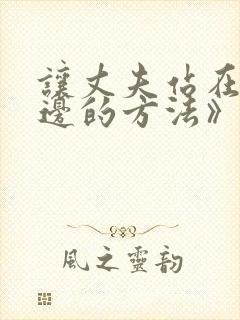 讓丈夫站在
邊的方法》
風之靈韵